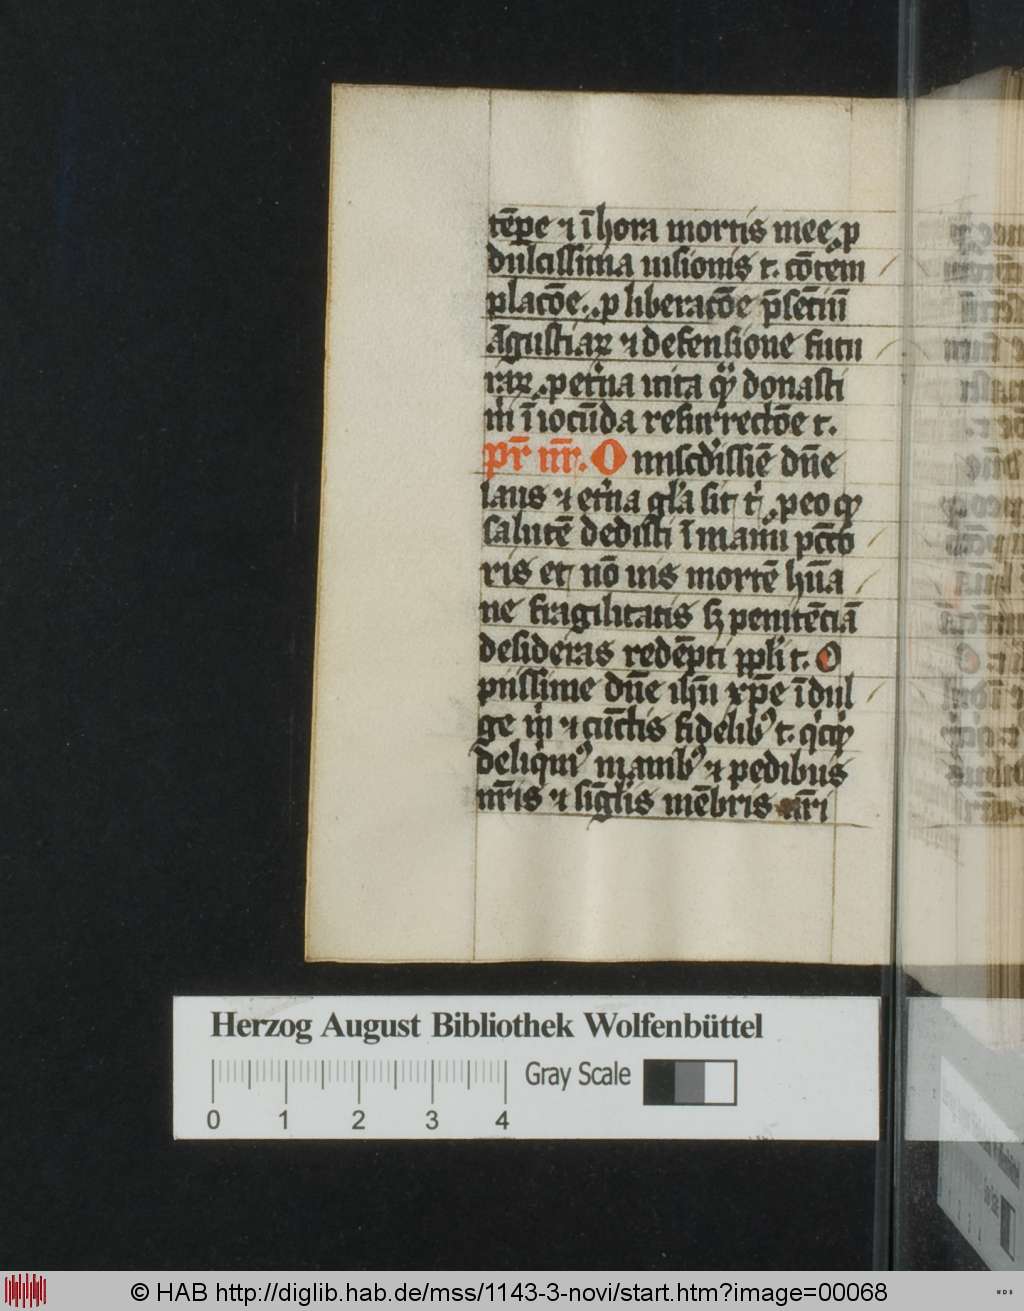 tēpe ⁊ ī hora mortis mee. p
dulcissima uisionis t. cōtēm
placōe. p liberacōe p̄sētiū
Agustiaꝝ ⁊ defensione futu
raꝝ. p et̉na uita qͥ donasti
m̉ ī iocūda resurrectōe t.
pr̄ nr̄. O miscd̉issiē dn̄e
laus ⁊ et̉na gl̉a sit t̉. p eo qͥ
salutē dedisti ī manū pcc̄to
ris et nō uis mortē hūa
ne fragilitatis sꝫ penitēciā
desideras redēpti ppl̉i t. O
piissime dn̄e ihū xp̄e īdul
ge m̉ ⁊ cūctis fidelibꝰ t. qͥcqͥ
deliqͥmꝰ manibꝰ ⁊ pedibus
nr̄is ⁊ sīgl̉is mēbris nr̄i
Herzog August Bibliothek Wolfenbüttel
Gray Scale
0 1 2 3 4
© HAB http://diglib.hab.de/mss/1143-3-novi/start.htm?image=00068